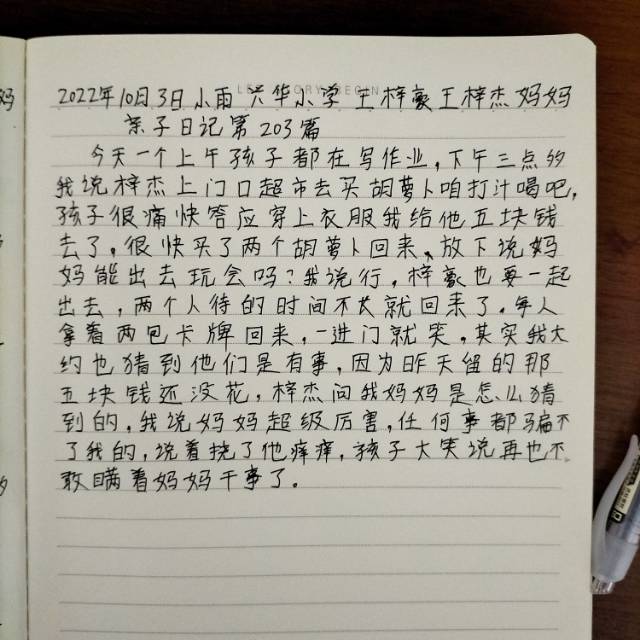 2022年10月3日小雨 兴华小学 王梓豪王梓杰妈妈
亲子日记第203篇
今天一个上午孩子都在写作业,下午三点多
我说梓杰上门口超市去买胡萝卜咱打汁喝吧,
孩子很痛快答应穿上衣服我给他五块钱
去了。很快买了两个胡萝卜回来、放下说妈
妈能出去玩会吗?我说行,梓豪也要一起
出去,两个人待的时间不长就回来了。每人
拿着两包卡牌回来,一进门就笑,其实我大
约也猜到他们是有事,因为昨天留的那
五块钱还没花,梓杰问我妈妈是怎么猜
到的,我说妈妈超级厉害,任何事都骗不
了我的,说着挠了他痒痒,孩子大笑说再也不
敢瞒着妈妈干事了。